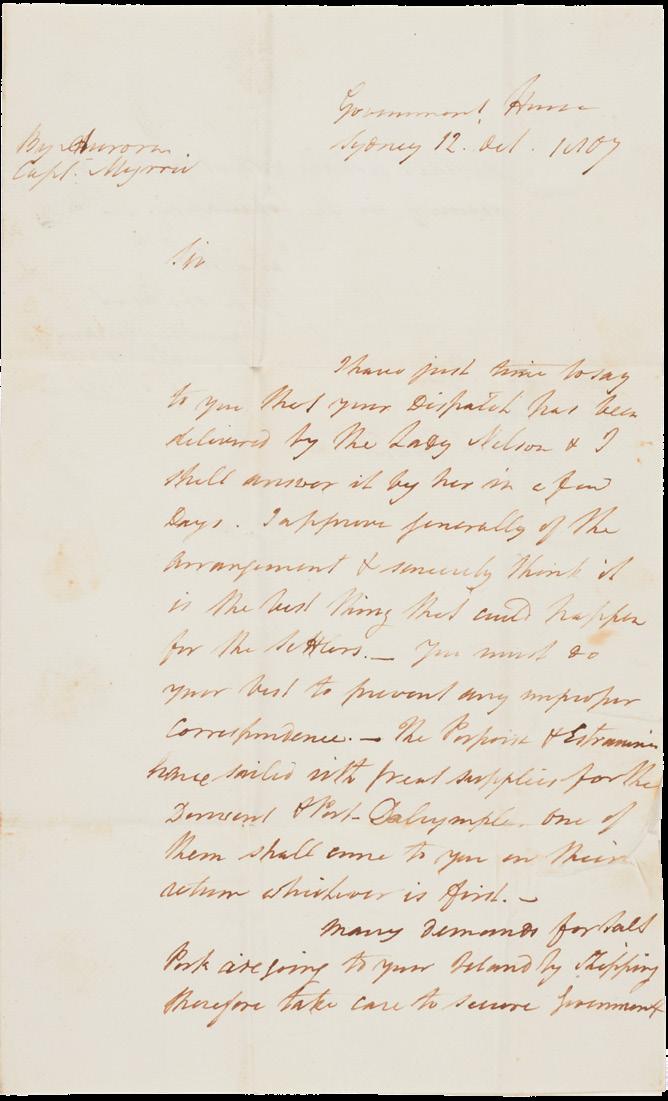 Government House
Sydney 12. Oct. 1807
By Aurora
Capt. Myrric
Sir
I have just time to say
to you that your Dispatch has been
delivered by the Lady Nelson & I
shall answer it by her in a few
Days. I approve generally of the
arrangement & sincerely think it
is the best thing that could happen
for the Settlers. — You must do
your best to prevent any improper
Correspondence. — The Porpoise & Estramina
have sailed with great supplies for the
Derwent & Port Dalrymple. one of
them shall come to you on their
return whichever is first. —
Many Demands for Salt
Pork are going to your Island by Shipping
therefore take care to secure Government